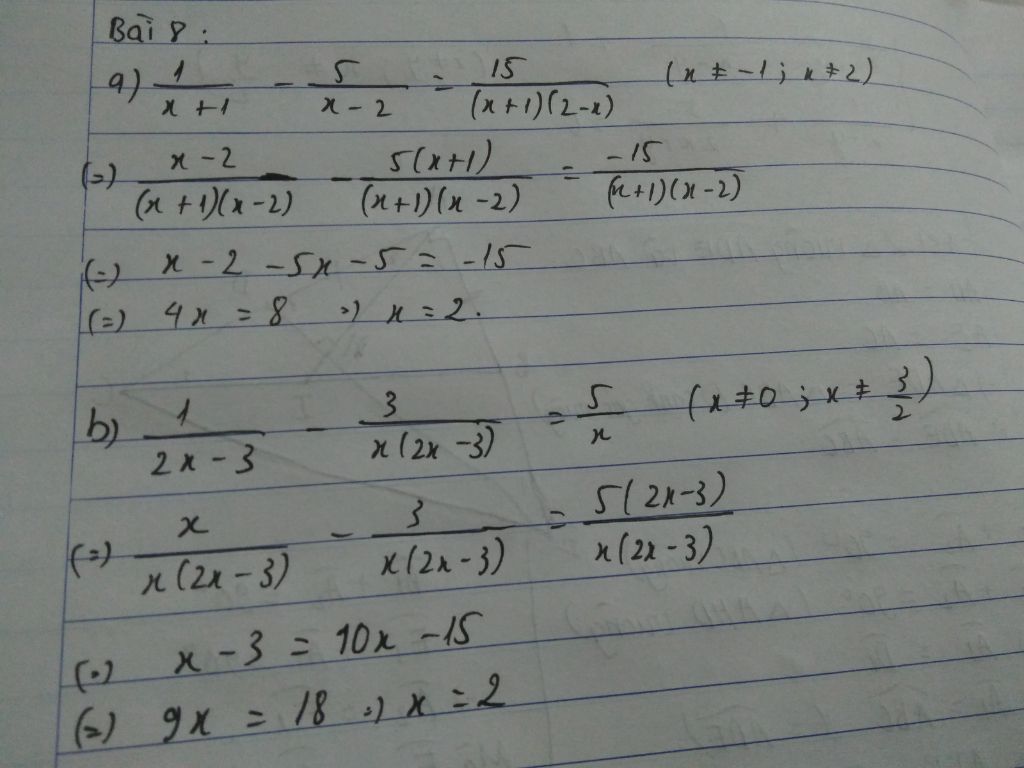 Bài 8 :
a) 1/(x+1) - 5/(x-2) = 15/((x+1)(2-x)) (x ≠ -1 ; x ≠ 2)
(=) (x-2)/((x+1)(x-2)) - 5(x+1)/((x+1)(x-2)) = -15/((x+1)(x-2))
(=) x - 2 - 5x - 5 = -15
(=) 4x = 8 => x = 2.
b) 1/(2x-3) - 3/(x(2x-3)) = 5/x (x ≠ 0 ; x ≠ 3/2)
(=) x/(x(2x-3)) - 3/(x(2x-3)) = 5(2x-3)/(x(2x-3))
(=) x - 3 = 10x - 15
(=) 9x = 18 => x = 2